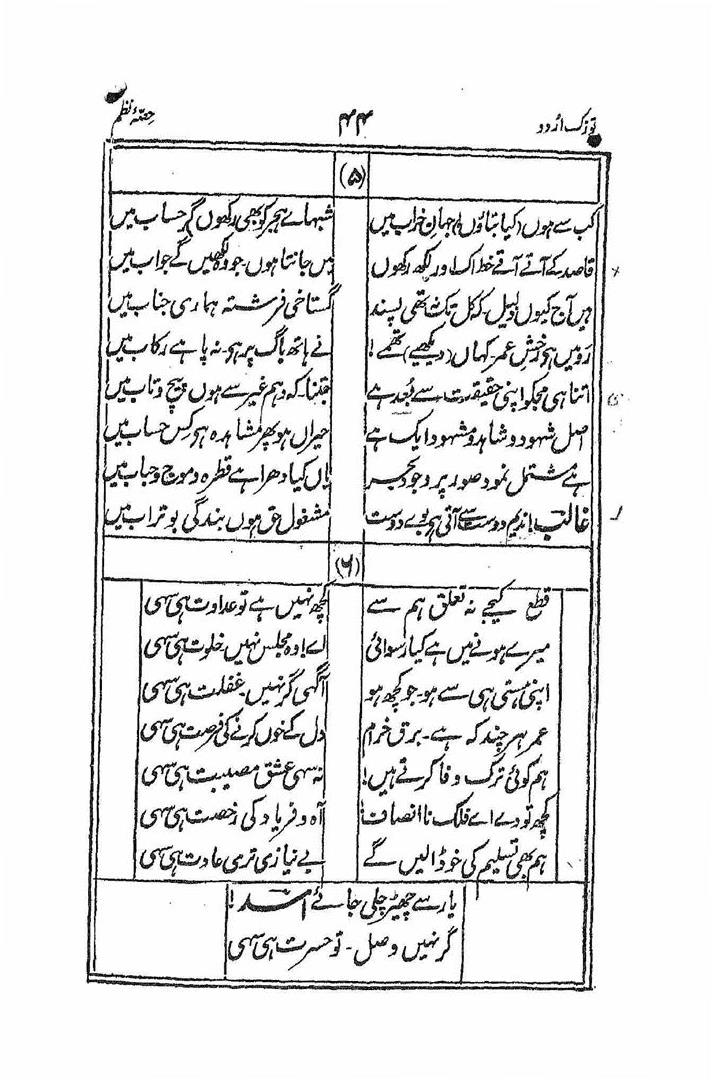 توزک اردو ۴۴ حصۂ نظم
(۵)
کب سے ہوں (کیا بتاؤں!) جہان خراب میں شبہائے ہجر کو بھی رکھوں گر حساب میں
قاصد کے آتے آتے خط اک اور لکھ رکھوں میں جانتا ہوں۔ جو وہ لکھیں گے جواب میں
ہیں آج کیوں ذلیل۔ کہ کل تک نہ تھی پسند گستاخی فرشتہ ہماری جناب میں
رَو میں ہو رخشِ عمر۔ کہاں (دیکھیے) تھمے! نے ہاتھ باگ پر ہو۔ نہ پا ہے رکاب میں
اتنا ہی مجکو اپنی حقیقت سے بُعد ہے جتنا۔ کہ وہم غیر سے ہوں پیچ و تاب میں
اصل شہود و شاہد و مشہود ایک ہے حیراں ہوں پھر مشاہدہ ہو کس حساب میں
ہے مشتمل نمود صور پر وجود بحر یاں کیا دھرا ہے قطرہ و موج و حباب میں
غالب! ندیم دوست سے آتی ہو بوے دوست مشغول حق ہوں بندگی بو تراب میں
(۶)
قطع کیجے نہ تعلق ہم سے کچھ نہیں ہے تو عداوت ہی سہی
میرے ہونے میں ہے کیا رسوائی اے! وہ مجلس نہیں۔ خلوت ہی سہی
اپنی ہستی ہی سے ہو۔ جو کچھ ہو آگہی گر نہیں۔ غفلت ہی سہی
عمر ہر چند کہ ہے۔ برق خرام دل کے خوں کرنے کی فرصت ہی سہی
ہم کوئی ترک وفا کرتے ہیں! نہ سہی عشق مصیبت ہی سہی
کچھ تو دے اے فلک نا انصاف! آہ و فریاد کی رخصت ہی سہی
ہم بھی تسلیم کی خو ڈالیں گے بے نیازی تری عادت ہی سہی
یار سے چھیڑ چلی جائے اسد!
گر نہیں وصل۔ تو حسرت ہی سہی